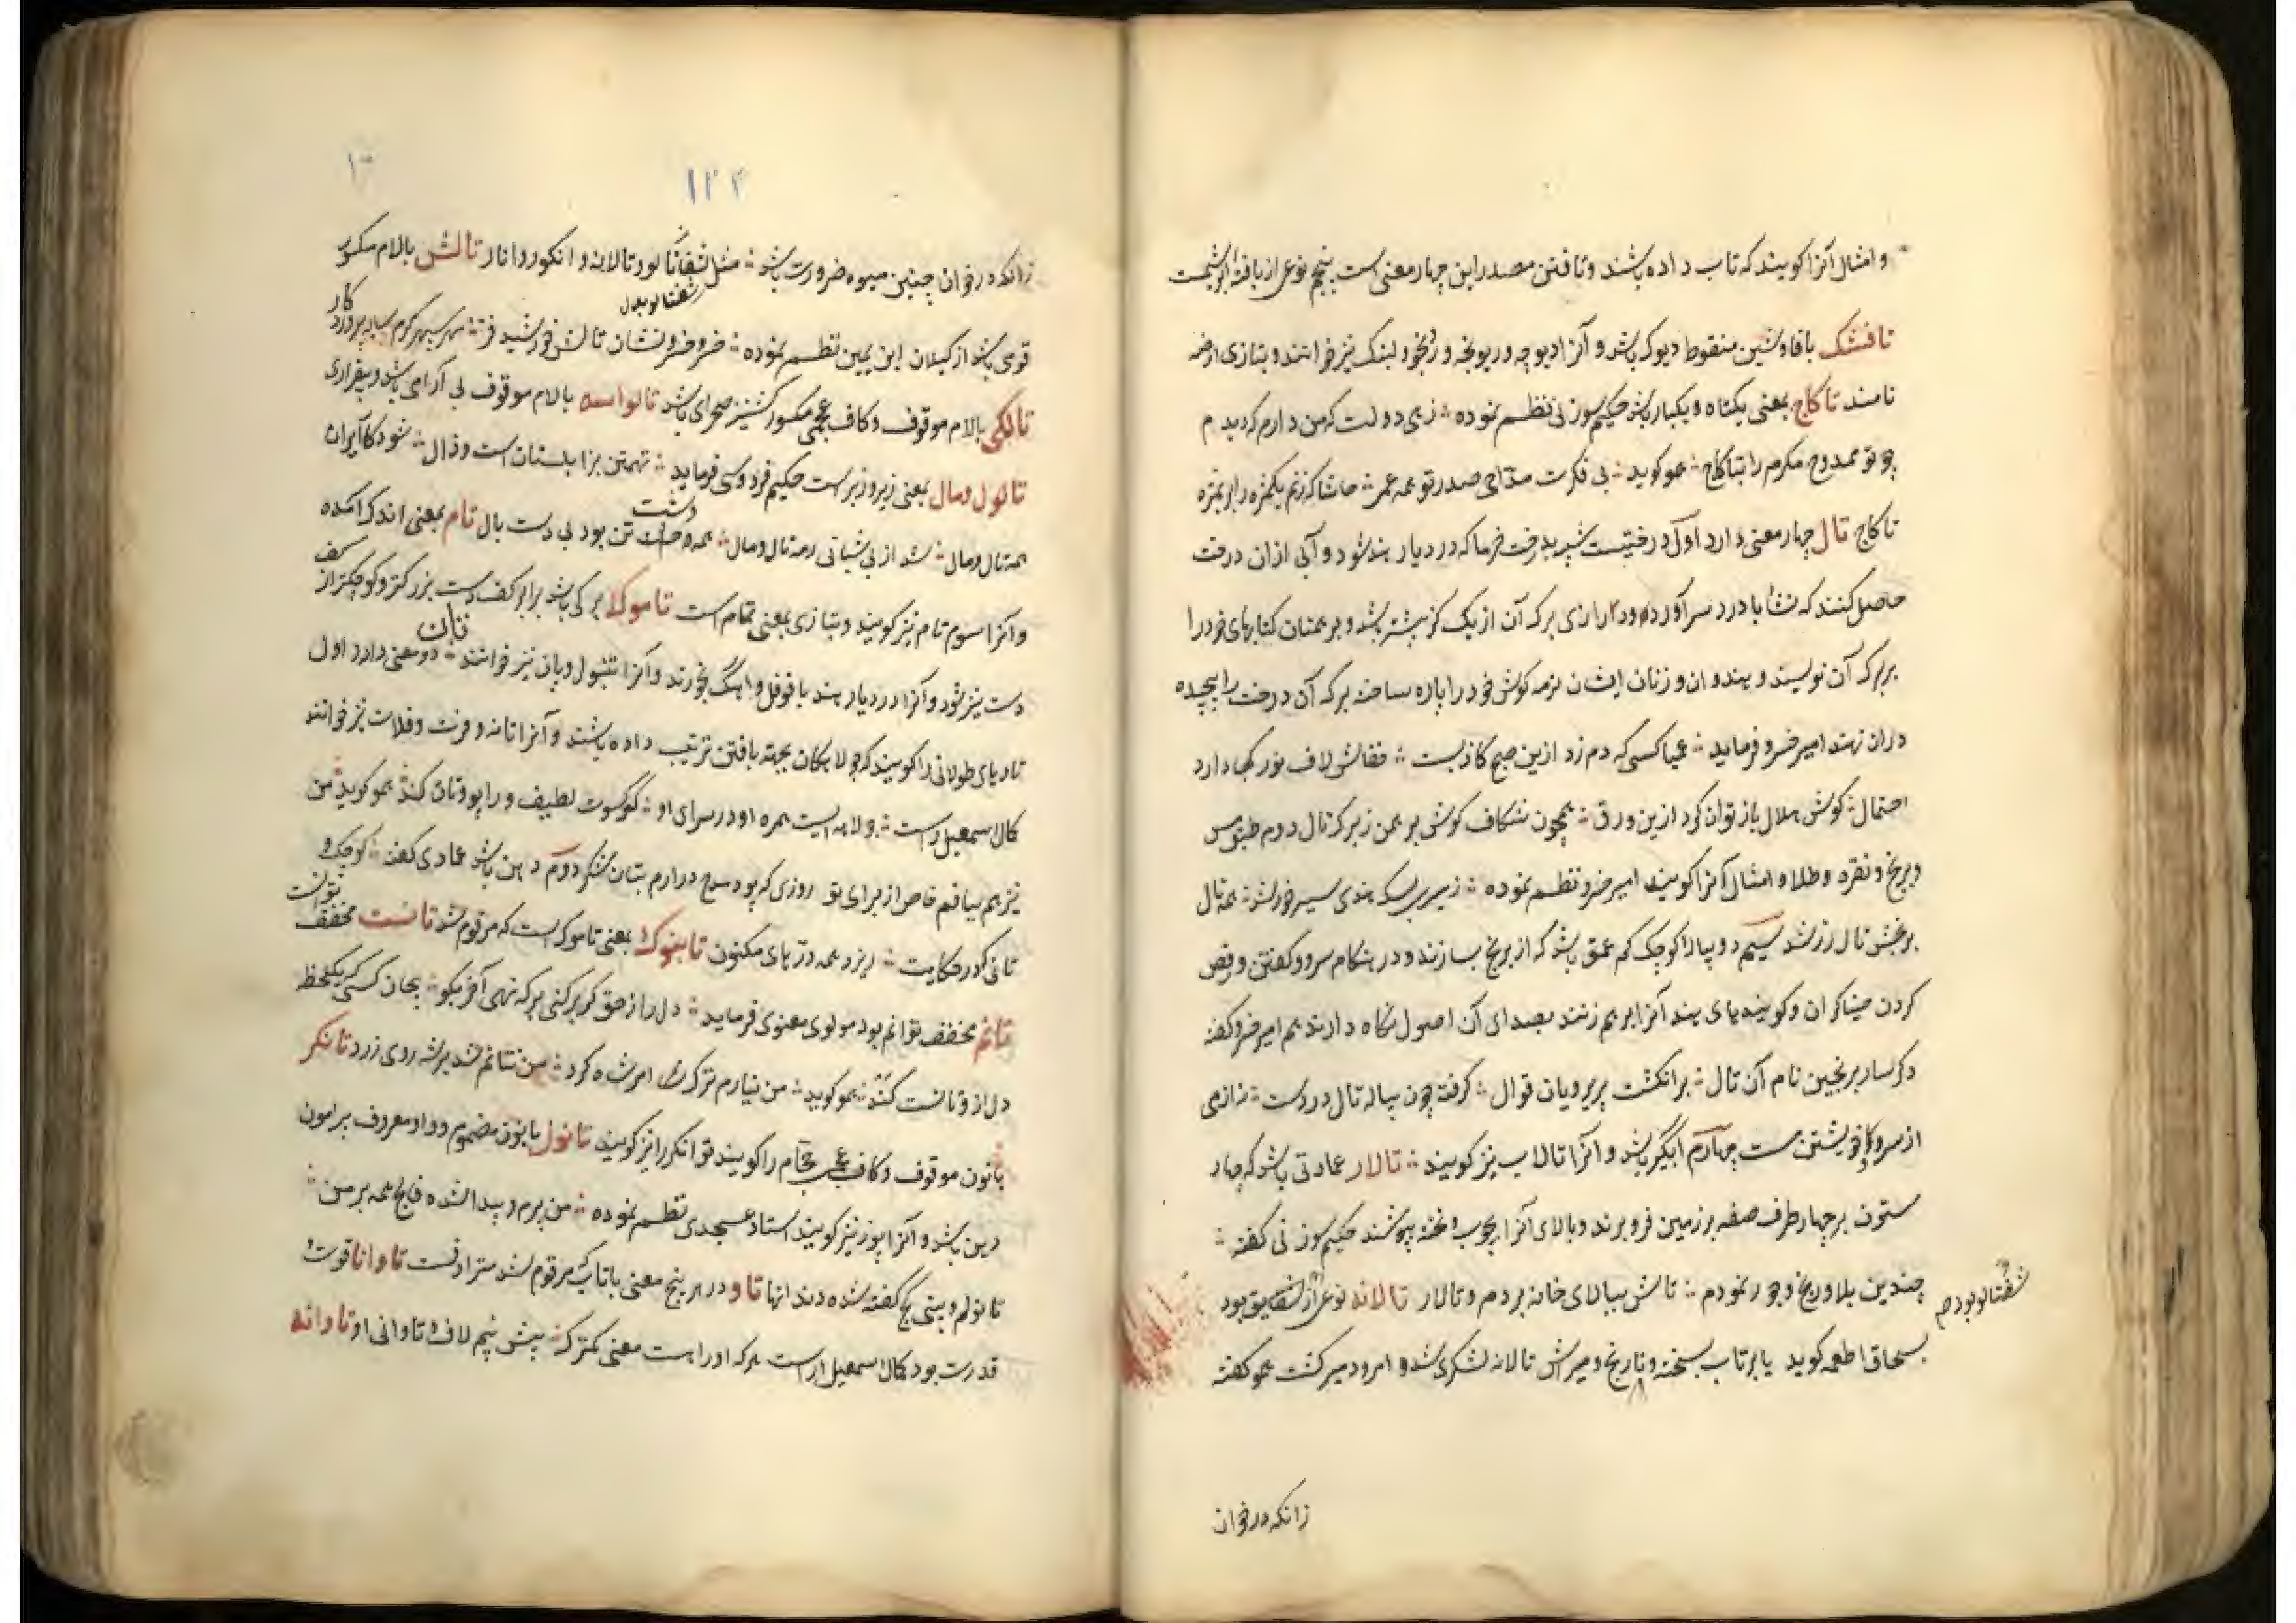 و امثال آنرا کویند که تاب داده باشند و تافتن مصدر این چهار معنی است پنجم نوعی از بافته ابریشمست
تافشک بافا و شین منقوط دیوک باشد و آنرا دیوچه و ریونجه و رنجو و لبنک نیز خوانند و بتازی ارضه
نامند تاکاج بمعنی یکتاه و یکبار باشد حکیم سوزنی نظم نموده زهی دولت که من دارم که دیدم
چو تو ممدوح مکرم را بتاکاج همو کوید بی فکرت مداحی صدر تو همه عمر حاشا که زنم یکمژه را بر مژه
تاکاج تال چهار معنی دارد اول درختیست شبیه بدرخت خرما که در دیار هند شود و آبی ازان درخت
حاصل کنند که نشابا درد سر آورد و درازی برک آن از یک کز بیشتر باشد و برهمنان کتابهای خود را
برم که آن نویسند و هندوان و زنان ایشان نرمه کوش خود را پاره ساخته برک آن درخت را پیچیده
دران نهند امیر خسرو فرماید عیبا کسی که دم زد ازین صبح کاذبست خفاش لاف نور کجا دارد
احتمال کوش هلال باز توان کرد ازین ورق همچون شکاف کوش برهمن زبرک تال دوم طبق مس
و برنج و نقره و طلا و امثال آنرا کویند امیر خسرو نظم نموده زیر بسکه هندی سیر خور شد همه تال
برنجش تال زر شد سیم دو پیاله کوچک کم عمق باشد که از برنج بسازند و در هنکام سرود کفتن و رقص
کردن خنیاکران و کویندهای هند آنرا بر هم زنند بصدای آن اصول نکاه دارند هم امیر خسرو کفته
دکر ساز برنجین نام آن تال بر انکشت پریرویان قوال کرفته چون پیاله تال در دست نه از می
از سرود خویشتن مست چهارم آبگیر باشد و آنرا تالاب نیز کویند تالار عمارتی باشد که چهار
ستون بر چهار طرف صفه بر زمین فرو برند و بالای آنرا بچوب و تخته بپوشند حکیم سوزنی کفته
چندین بلا و رنج و جور نمودم تا لش ببالای خانه بردم و تالار تالانه نوعی از شفتالو بود
شفتالو بود م
بسحاق اطعمه کوید یا بر تاب پسخته و نارنج و میرش تالانه لشکری شد و امرود میر کشت همو کفته
زانکه در خوان
۱۲۴
زانکه در خوان چنین میوه ضرورت باشد مثل شفتالود و تالانه و انکور و انار تالش بالام مکسور
شفتالو بدل
قومی باشد از کیلان ابن یمین نظم نموده خسرو خسرو نشان تالش خورشید فر مهر سپهر کرم سایه پروردکار
تالکی بالام موقوف و کاف عجمی مکسور کشنیز صحرای باشد تالواسه بالام موقوف بی آرامی باشد و بیقراری
تال و مال بمعنی زیر و زبر است حکیم فردوسی فرماید تهمتن بزابلستان است و زال شود کار ایران
همه تال و مال شد از بی شبانی رمه تال و مال همه دشت تن بود بی دست و بال تام بمعنی اندک آمده
و آنرا سوم تام نیز کویند و بتازی بمعنی تمام است تاموک برکی باشد برابر کف دست بزرکتر و کوچکتر از کف
دست نیز شود و آنرا در دیار هند با فوفل و اهک بخورند و آنرا تنبول و پان نیز خوانند تان دو معنی دارد اول
تارهای طولانی را کویند که جولاهکان بجهته بافتن ترتیب داده باشند و آنرا تانه و فرت و فلات نیز خوانند
کمال اسمعیل راست جولاهه ایست بهره او در سرای او کو کسوت لطیف ورا پود و تان کند همو کوید من
نیز هم ببافم خاص از برای تو روزی که پود مدح در آرم بتان شکر دوم دهن باشد عمادی کفته کوچک و
تانی که در حکایت ریزد همه درّهای مکنون تانبوک بمعنی تاموک است که مرقوم شد تانست مخفف توانست
تانم مخفف توانم بود مولوی معنوی فرماید دل را ز حق کر برکنی بر که نهی آخر بکو بیجان کسی که یک لحظه
دل از و تانست کند همو کوید من نیارم ترک امر شاه کرد من نتانم شد بر شه روی زرد تانکر
بانون موقوف و کاف عجمی حجام را کویند توانکر را نیز کویند تانول بانون مضموم و واو معروف پیرامون
دهن باشد و آنرا پوز نیز کویند استاد عسجدی نظم نموده من پیرم و پیدا شده فالج همه بر من
تانولم و بینی کج کفته شده دندانها تاو در هر پنج معنی باتاب که مرقوم شد مترادفست تاوانا قوت
قدرت بود کمال اسمعیل راست هر که او را است معنی کمترک بیش بینم لاف تاوانی او تاوانه